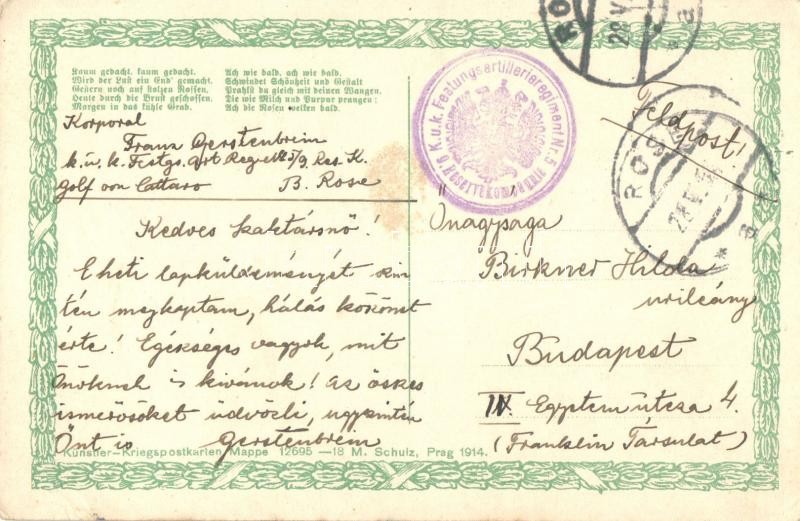 Kaum gedacht, kaum gedacht,
Wird der Lust ein End' gemacht.
Gestern noch auf stolzen Rossen,
Heute durch die Brust geschossen,
Morgen in das kühle Grab.
Ach wie bald, ach wie bald,
Schwindet Schönheit und Gestalt
Prahlst du gleich mit deinen Wangen,
Die wie Milch und Purpur prangen:
Ach die Rosen welken bald.
Korporal
Franz Gerstenbrein
k. u. k. Festgs. Art Reg. № 5/9, Res. K.
Golf von Cattaro B. Rose
K.u.k. Festungsartillerieregiment Nr. 5
Reservekompanie
ROSE
28 V
a
Feldpost!
ROSE
28 V
* a
Kedves Szaktársnő!
E heti lapküldeményét szin
tén megkaptam, hálás köszönet
érte! Egészséges vagyok, mit
Önöknek is kivánok! Az összes
ismerősöket üdvözli, ugyszintén
Önt is Gerstenbrein
Önagysága
Birkner Hilda
urileány
Budapest
IV. Egyetem utcza 4.
(Franklin Társulat)
Künstler-Kriegspostkarten Mappe 12695 —18 M. Schulz, Prag 1914.